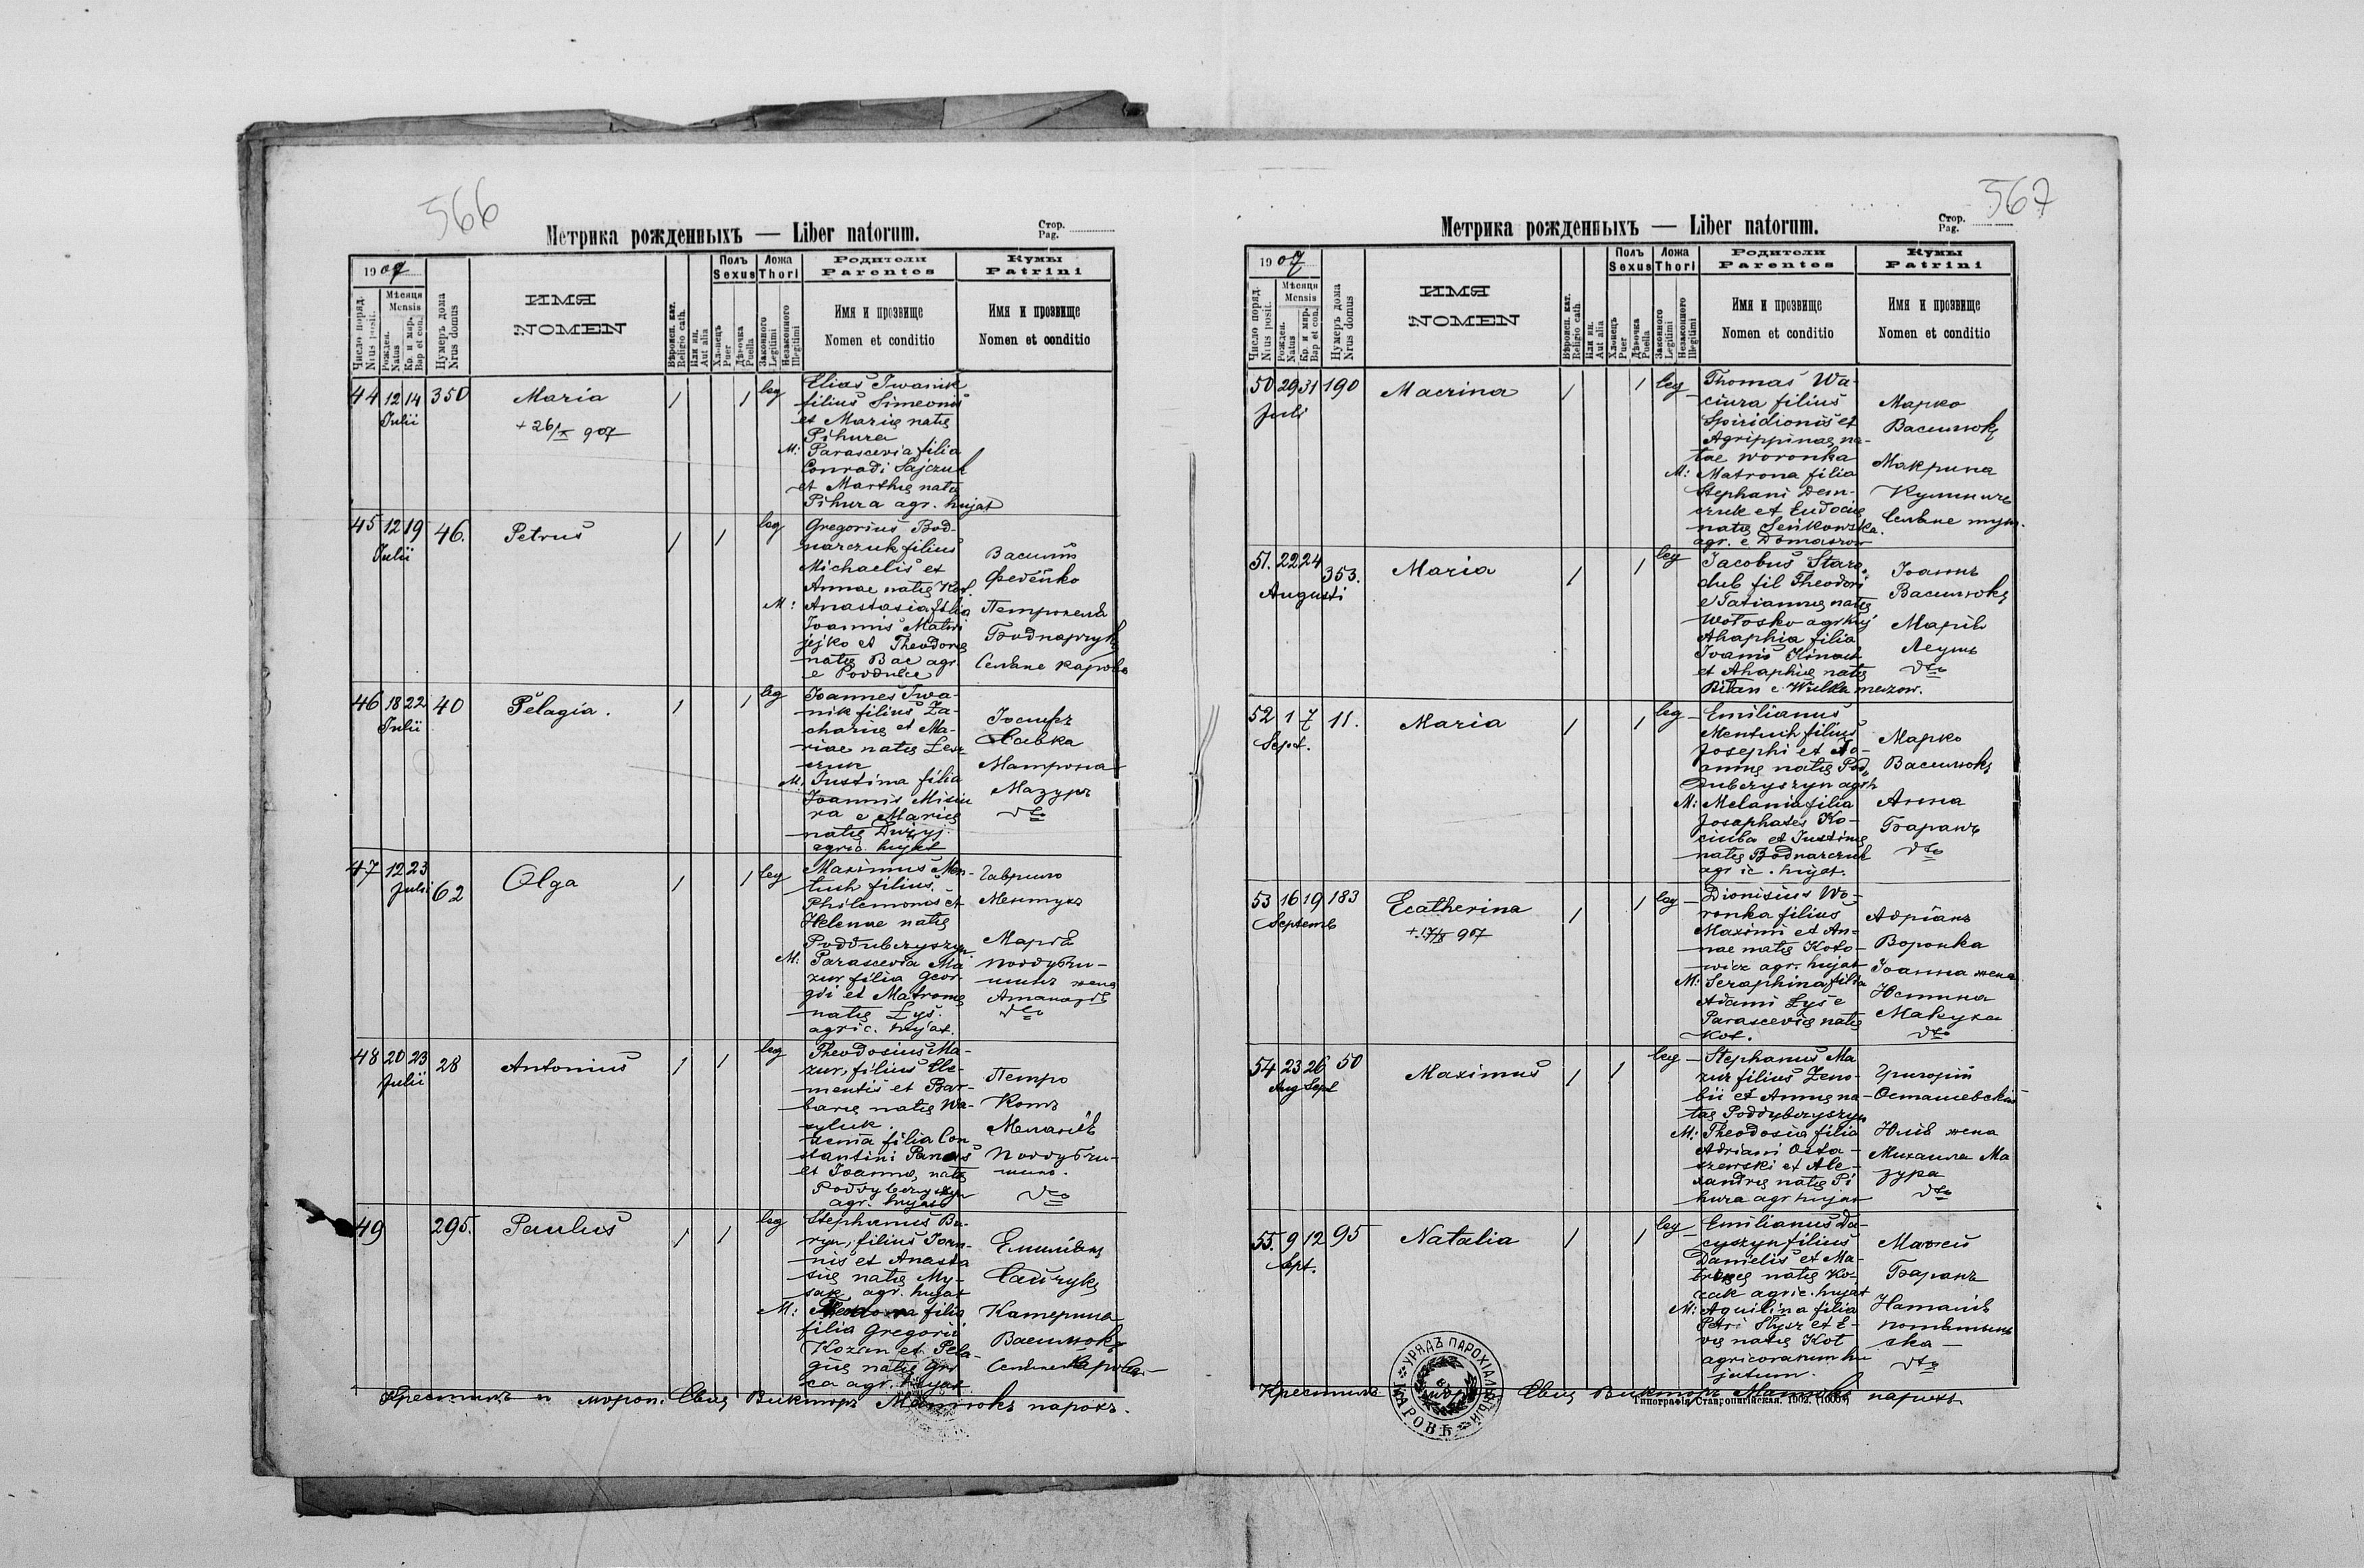 566
Метрика рожденныхъ — Liber natorum.
Стор.
Pag.
1907
Число поряд.
Nrus posit.
Мѣсяця
Mensis
Рожден.
Natus
Кр. и мир.
Bap et con.
Нумеръ дома
Nrus domus
ИМЯ
NOMEN
Вѣроисп. кат.
Religio cath.
Или ин.
Aut alia
Полъ
Sexus
Хлопецъ
Puer
Дѣвочка
Puella
Ложа
Thori
Законного
Legitimi
Незаконного
Illegitimi
Родители
Parentes
Имя и прозвище
Nomen et conditio
Кумы
Patrini
Имя и прозвище
Nomen et conditio
44 12 14 350 Maria 1 1 leg
Julii
+ 26/X 907
Elias Iwanik
filius Simeonis
et Marię natę
Pihura
M: Parascevia filia
Conradi Sajczuk
et Marthę natę
Pihura agr. hujat
45 12 19 46. Petrus 1 1 leg
Julii
Gregorius Bod-
narczuk filius
Michaelis et
Annae natę Kot.
M: Anastasia filia
Joannis Matwi
jejko et Theodorę
natę Bac agr.
e Poddubce
Василій
Федейко
Петронеля
Боднарчукъ
Селяне Карова
46 18 22 40 Pelagia. 1 1 leg
Julii
Joannes Iwa-
nik filius Za-
charię et Ma-
riae natę Lew
czuk
M: Justina filia
Joannis Misiu
ra e Marię
natę Dużyj.
agric. hujat
Іосифъ
Савка
Матрона
Мазуръ
dto
47 12 23 62 Olga 1 1 leg
Juli
Maximus Men-
tuch filius
Philemonis et
Helenae natę
Poddubczyszyn
M: Parascevia Ma
zur filia Geor-
gii et Matronę
natę Łyś.
agric. hujat.
Гавриило
Ментухъ
Марія
Поддубчи-
шинъ жена
dto
48 20 23 28 Antonius 1 1 leg
Julii
Theodosius Ma-
zur, filius Cle-
mentis et Bar-
barę natę Wa-
zyluk.
Xenia filia Con
stantini Panas
et Joannę natę
Poddybczyszyn
agr. hujat
Петро
Котъ
Меланія
Поддубчи-
шинъ.
dto
49 295. Paulus 1 1 leg
Stephanus Bu-
ryn, filius Joan-
nis et Anasta
się natę My-
sak agr. hujat
M: Theodora filia
filia Gregorii
Kozan et Pela-
gię natę
ca agr. hujat
Емиліянъ
Сайчукъ
Катерина
Василюкъ
Селяне Карова
Крестилъ и муроп. Свящ Викторъ Матюкъ парохъ.
567
Метрика рожденныхъ — Liber natorum.
Стор.
Pag.
1907
Число поряд.
Nrus posit.
Мѣсяця
Mensis
Рожден.
Natus
Кр. и мир.
Bap et con.
Нумеръ дома
Nrus domus
ИМЯ
NOMEN
Вѣроисп. кат.
Religio cath.
Или ин.
Aut alia
Полъ
Sexus
Хлопецъ
Puer
Дѣвочка
Puella
Ложа
Thori
Законного
Legitimi
Незаконного
Illegitimi
Родители
Parentes
Имя и прозвище
Nomen et conditio
Кумы
Patrini
Имя и прозвище
Nomen et conditio
50 29 31 190 Macrina 1 1 leg
Juli
Thomas Wa-
ciura filius
Spiridionis et
Agrippinae na-
tae Woronka
M: Matrona filia
Stephani Dem-
czuk et Eudocię
natę Seńkowska.
agr. e Domaszow
Марко
Василюкъ
Макрина
Кулиничъ
Селяне тут.
51. 22 24 353. Maria 1 1 leg
Augusti
Jacobus Staro-
dub fil Theodori
e Tatiannę natę
Wołosko agr huj
Ahaphia filia
Joanis Kinach
et Ahaphię natę
Bilan e Wulka mazow.
Іоаннъ
Василюкъ
Марія
Леушъ
dto
52 1 7 11. Maria 1 1 leg
Sept.
Emilianus
Mentuch filius
Josephi et Jo-
annę natę Pod
dubczyszyn agr h
M: Melania filia
Josaphates Ko-
ciuba et Justinę
natę Bodnarczuk
agric. hujat.
Марко
Василюкъ
Анна
Баранъ
dto
53 16 19 183 Ecatherina 1 1 leg
Septemb
Dionisius Wo-
ronka filius
Maximi et An-
nae natę Koto-
wicz agr. hujat
M: Seraphina filia
Adami Łyś e
Parascevię natę
Kot.
Адріанъ
Воронка
Іоанна жена
Юстина
Макуха
dto
54 23 26 50 Maximus 1 1 leg
Aug Sept
Stephanus Ma
zur filius Zeno-
bii et Annę na-
tae Poddybczyszyn
M: Theodosia filia
Adriani Osta-
szewski et Ale-
xandrę natę Pi
hura agr hujat
Григорій
Осташевскій
Юлія жена
Михаила Ма
зура
dto
55. 9 12 95 Natalia 1 1 leg
Sept.
Emilianus Da-
cyszyn filius
Danielis et Ma-
tronę natę Ko-
zak agric. hujat
M: Aquilina filia
Petri Słysz et E-
vę natę Kot
agricorarum hu
jatum.
Матѳей
Баранъ
Наталія
dto
Крестилъ Свящ Викторъ Матюкъ парохъ
УРЯДЪ ПАРОХІАЛЬНЫЙ КАРОВѢ
Типографія Ставропигійская. 1902.